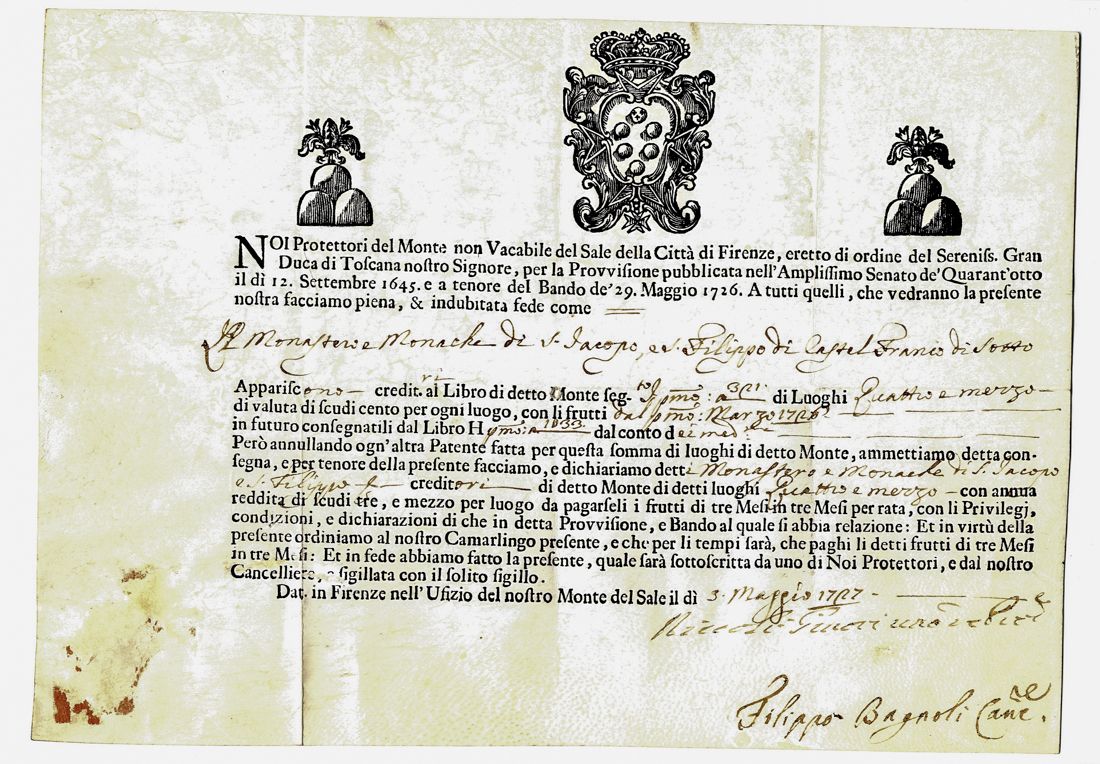 NOI Protettori del Monte non Vacabile del Sale della Città di Firenze, eretto di ordine del Sereniss. Gran
Duca di Toscana nostro Signore, per la Provvisione pubblicata nell'Amplissimo Senato de'Quarant'otto
il dì 12. Settembre 1645. e a tenore del Bando de'29. Maggio 1726. A tutti quelli, che vedranno la presente
nostra facciamo piena, & indubitata fede come
Il Monastero e Monache di S. Jacopo, e S. Filippo di Castel Franco di Sotto
Appariscono credit.ri al Libro di detto Monte seg.to pmo: a 321. di Luoghi Quattro e mezzo
di valuta di scudi cento per ogni luogo, con li frutti dal pmo: Marzo 1726
in futuro consegnatili dal Libro H pmo: a 1033. dal conto dei med:
Però annullando ogn'altra Patente fatta per questa somma di luoghi di detto Monte, ammettiamo detta con-
segna, e per tenore della presente facciamo, e dichiariamo detti Monastero e Monache di S. Jacopo
e S. Filippo creditori di detto Monte di detti luoghi Quattro e mezzo con annua
reddita di scudi tre, e mezzo per luogo da pagarseli i frutti di tre Mesi in tre Mesi per rata, con li Privilegj,
condizioni, e dichiarazioni di che in detta Provvisione, e Bando al quale si abbia relazione: Et in virtù della
presente ordiniamo al nostro Camarlingo presente, e che per li tempi sarà, che paghi li detti frutti di tre Mesi
in tre Mesi: Et in fede abbiamo fatto la presente, quale sarà sottoscritta da uno di Noi Protettori, e dal nostro
Cancelliere, e sigillata con il solito sigillo.
Dat. in Firenze nell'Ufizio del nostro Monte del Sale il dì 3. Maggio 1727.
Filippo Bagnoli Canc.re